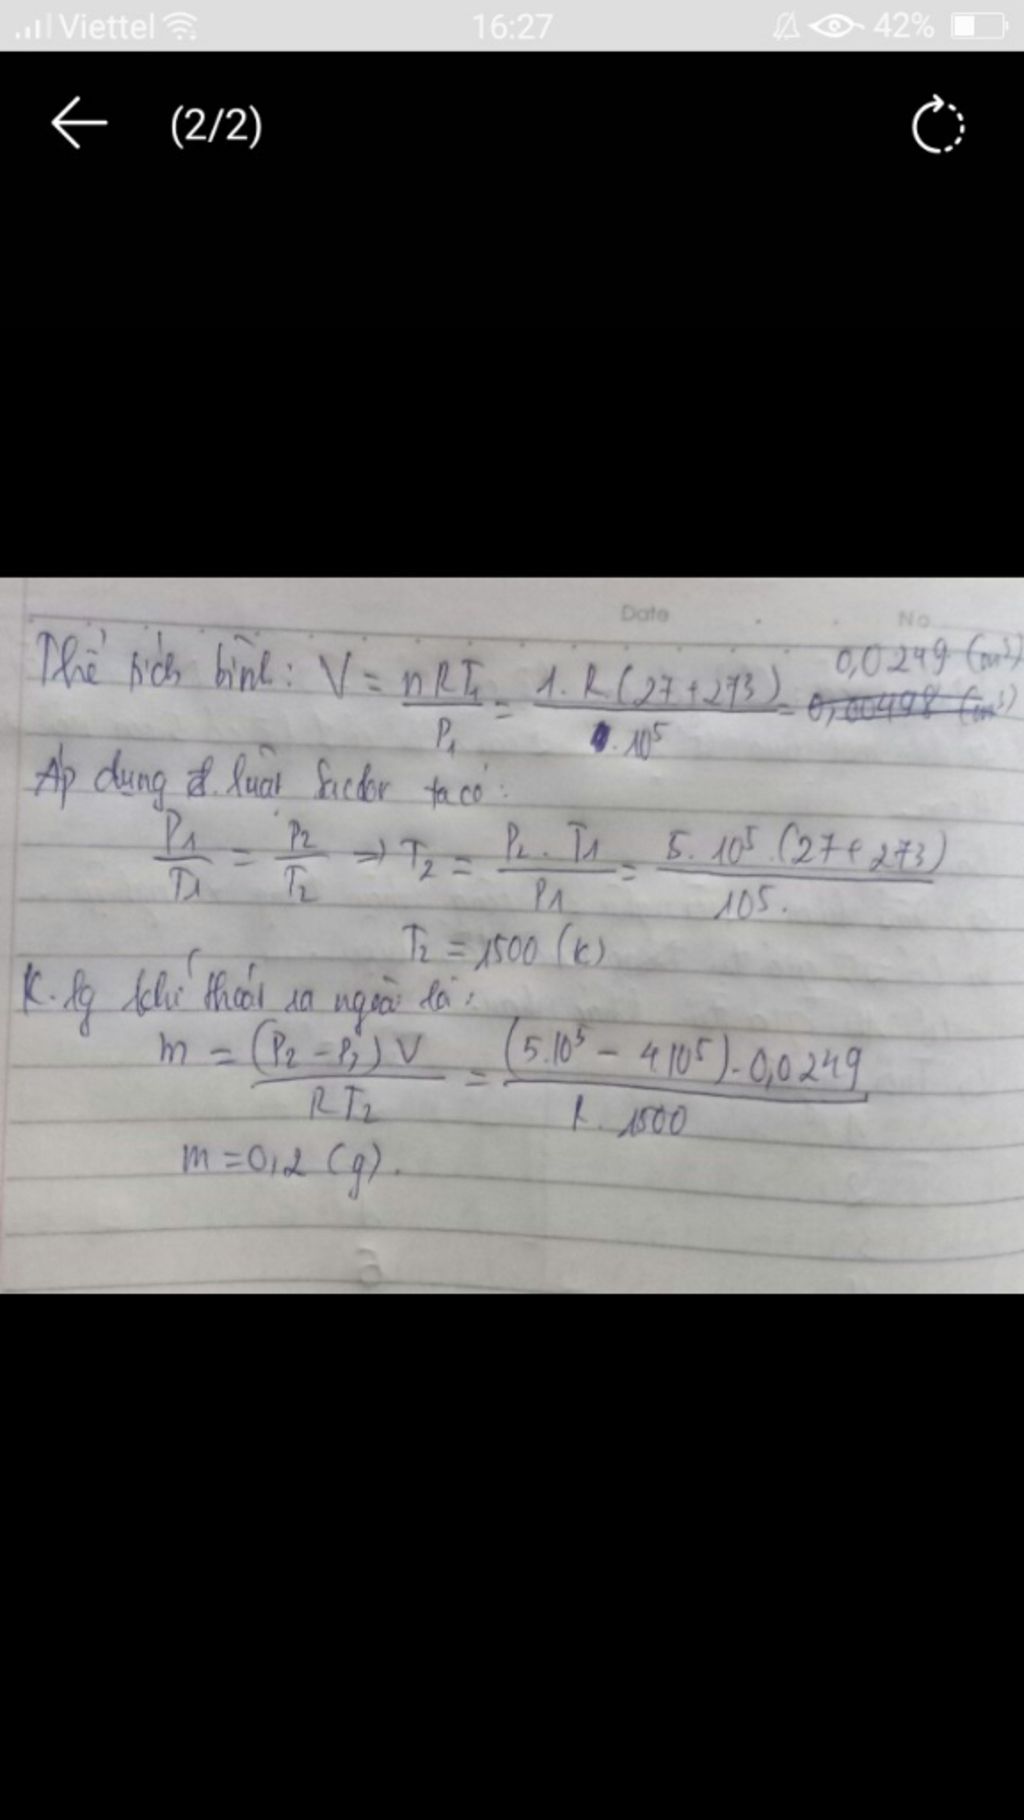 Viettel 16:27 42%
(2/2)
Date No
Thể tích bình: V = nRT₁/P₁ = 1.R(27+273)/.10⁵ = 0,0249 (m³) 0,00498 (m³)
Áp dụng đ. luật Saclơ ta có:
P₁/T₁ = P₂/T₂ => T₂ = P₂.T₁/P₁ = 5.10⁵.(27+273)/10⁵.
T₂ = 1500 (K)
K. lg khí thoát ra ngoài là:
m = (P₂ - P₃)V/RT₂ = (5.10⁵ - 4.10⁵).0,0249/R.1500
m = 0,2 (g).